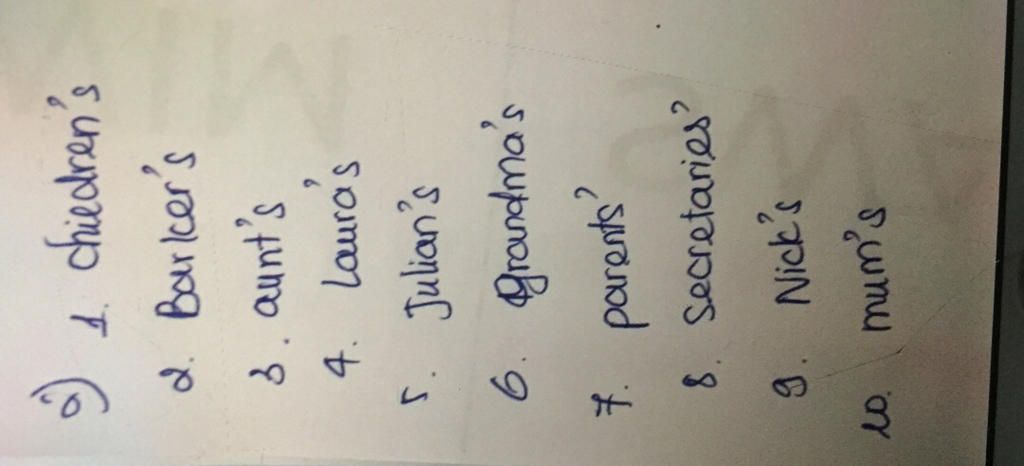 a) 1. children's
2. Barker's
3. aunt's
4. Laura's
5. Julian's
6. grandma's
7. parents'
8. secretaries'
9. Nick's
10. mum's